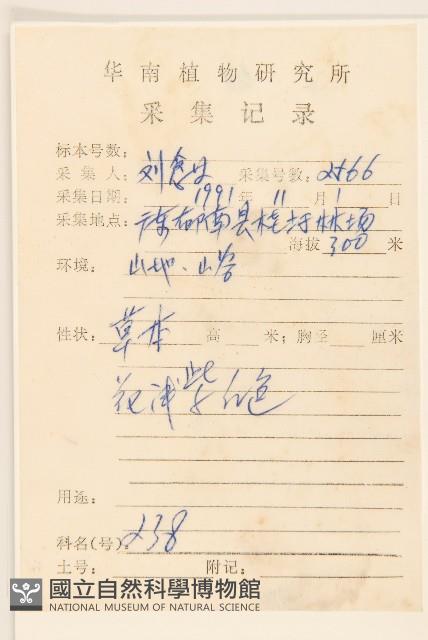 华南植物研究所
采集记录
标本号数:
采集人: 刘念 采集号数: 2566
采集日期: 1991年11月1日
采集地点: 广东郁南县桂圩林场
海拔 300 米
环境: 山地、山谷
性状: 草本 高 米; 胸径 厘米
花浅紫红色
用途:
科名(号): 238
土号: 附记:
國立自然科學博物館
NATIONAL MUSEUM OF NATURAL SCIENCE